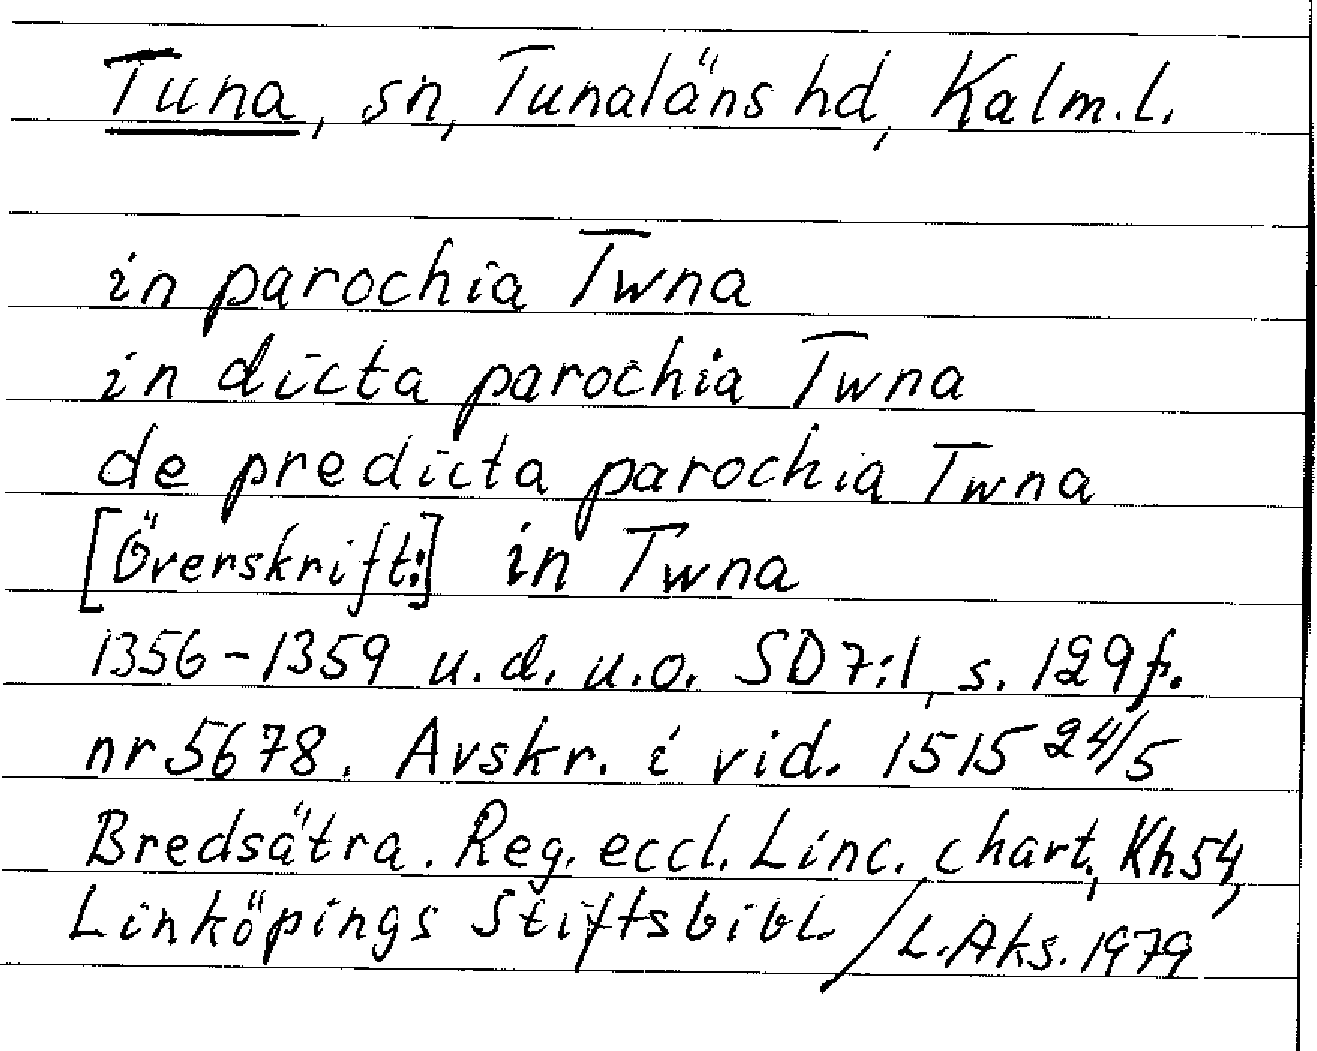 Tuna, sn, Tunaläns hd, Kalm.l.
in parochia Twna
in dicta parochia Twna
de predicta parochia Twna
[Överskrift:] in Twna
1356-1359 u.d. u.o. SD 7:1, s. 129 f.
nr 5678. Avskr. i vid. 1515 24/5
Bredsätra. Reg. eccl. Linc. chart., Kh 54,
Linköpings Stiftsbibl. / L. Aks. 1979